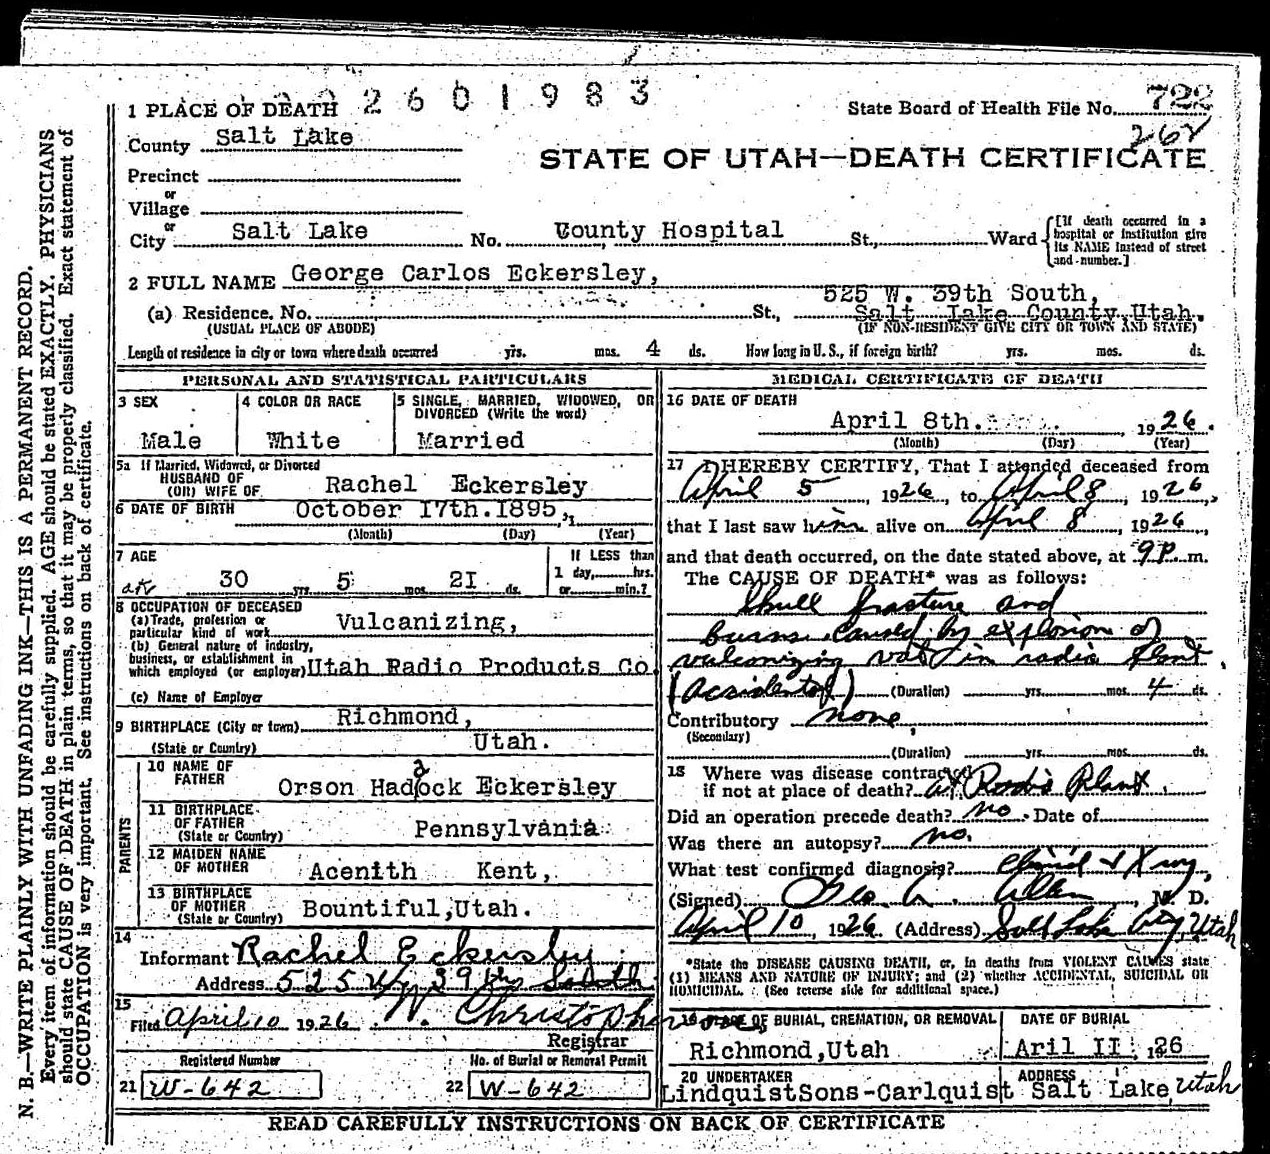 N. B.—WRITE PLAINLY WITH UNFADING INK—THIS IS A PERMANENT RECORD.
Every item of information should be carefully supplied. AGE should be stated EXACTLY. PHYSICIANS
should state CAUSE OF DEATH in plain terms, so that it may be properly classified. Exact statement of
OCCUPATION is very important. See instructions on back of certificate.
2601983
1 PLACE OF DEATH
State Board of Health File No. 722
262
County Salt Lake
STATE OF UTAH—DEATH CERTIFICATE
Precinct
or
Village
or
City Salt Lake No. County Hospital St., Ward
[If death occurred in a
hospital or institution give
its NAME instead of street
and number.]
2 FULL NAME George Carlos Eckersley,
525 W. 39th South,
(a) Residence. No. St., Salt Lake County, Utah.
(USUAL PLACE OF ABODE) (IF NON-RESIDENT GIVE CITY OR TOWN AND STATE)
Length of residence in city or town where death occurred yrs. mos. 4 ds. How long in U. S., if foreign birth? yrs. mos. ds.
PERSONAL AND STATISTICAL PARTICULARS
3 SEX
Male
4 COLOR OR RACE
White
5 SINGLE, MARRIED, WIDOWED, OR
DIVORCED (Write the word)
Married
5a If Married, Widowed, or Divorced
HUSBAND OF
(OR) WIFE OF Rachel Eckersley
6 DATE OF BIRTH October I7th.I895,
(Month) (Day) (Year)
7 AGE
30 yrs. 5 mos. 2I ds.
If LESS than
1 day, hrs.
or min.?
8 OCCUPATION OF DECEASED
(a) Trade, profession or
particular kind of work Vulcanizing,
(b) General nature of industry,
business, or establishment in
which employed (or employer) Utah Radio Products Co.
(c) Name of Employer
9 BIRTHPLACE (City or town) Richmond,
(State or Country) Utah.
PARENTS
10 NAME OF
FATHER Orson Hadock Eckersley
a
11 BIRTHPLACE
OF FATHER
(State or Country) Pennsylvania
12 MAIDEN NAME
OF MOTHER Acenith Kent,
13 BIRTHPLACE
OF MOTHER
(State or Country) Bountiful,Utah.
14
Informant Rachel Eckersley
Address 525 W 39th South
15
Filed April 10 1926 W. Christopherson
Registrar
Registered Number
21 W-642
No. of Burial or Removal Permit
22 W-642
MEDICAL CERTIFICATE OF DEATH
16 DATE OF DEATH
April 8th. 1926.
(Month) (Day) (Year)
17 I HEREBY CERTIFY, That I attended deceased from
April 5, 1926, to April 8, 1926,
that I last saw him alive on April 8, 1926,
and that death occurred, on the date stated above, at 9P m.
The CAUSE OF DEATH* was as follows:
Skull fracture and
burns caused by explosion of
vulconizing vat in radio plant.
(Accidental) (Duration) yrs. mos. 4 ds.
Contributory none,
(Secondary)
(Duration) yrs. mos. ds.
18 Where was disease contracted
if not at place of death? at Radio Plant.
Did an operation precede death? no. Date of
Was there an autopsy? no.
What test confirmed diagnosis? Clinical + X ray,
(Signed) Geo. A. Allen, M. D.
April 10, 1926 (Address) Salt Lake City, Utah
*State the DISEASE CAUSING DEATH, or, in deaths from VIOLENT CAUSES state
(1) MEANS AND NATURE OF INJURY; and (2) whether ACCIDENTAL, SUICIDAL OR
HOMICIDAL. (See reverse side for additional space.)
19 PLACE OF BURIAL, CREMATION, OR REMOVAL
Richmond,Utah
DATE OF BURIAL
Aril II, 1926
20 UNDERTAKER
LindquistSons-Carlquist
ADDRESS
Salt Lake, Utah
READ CAREFULLY INSTRUCTIONS ON BACK OF CERTIFICATE